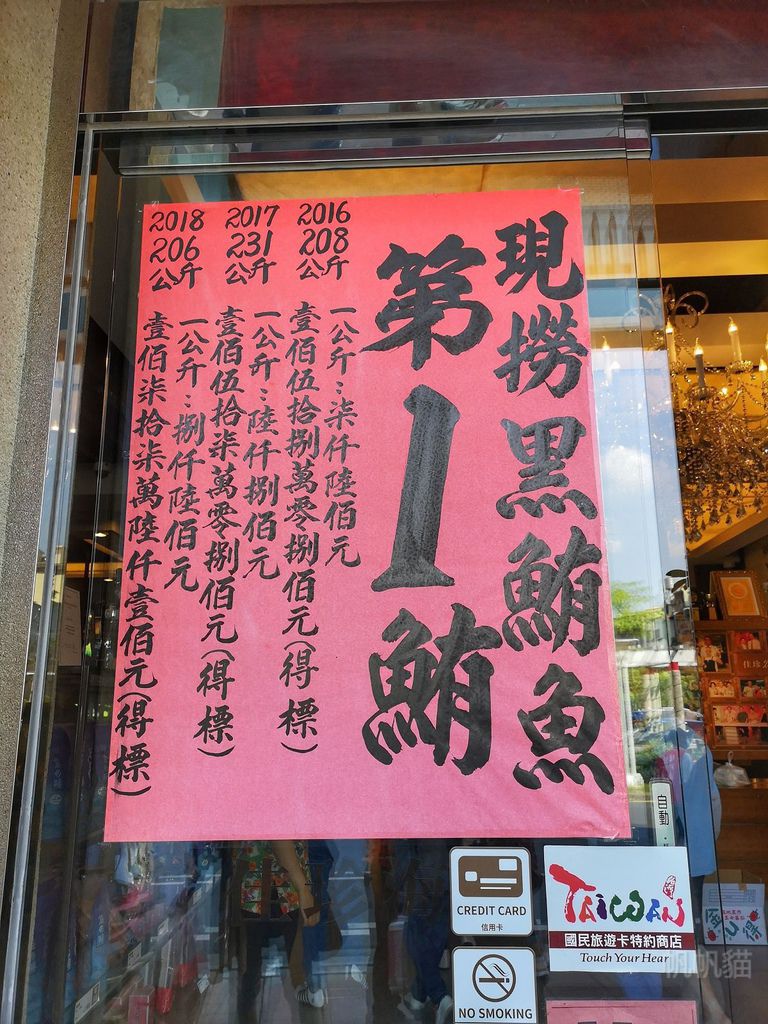 現撈黑鮪魚
第1鮪
2016
208
公斤
一公斤：柒仟陸佰元
壹佰伍拾捌萬零捌佰元(得標)
2017
231
公斤
一公斤：陸仟捌佰元
壹佰伍拾柒萬零捌佰元(得標)
2018
206
公斤
一公斤：捌仟陸佰元
壹佰柒拾柒萬陸仟壹佰元(得標)
自動
CREDIT CARD
信用卡
NO SMOKING
TAIWAN
國民旅遊卡特約商店
Touch Your Heart
帆帆貓